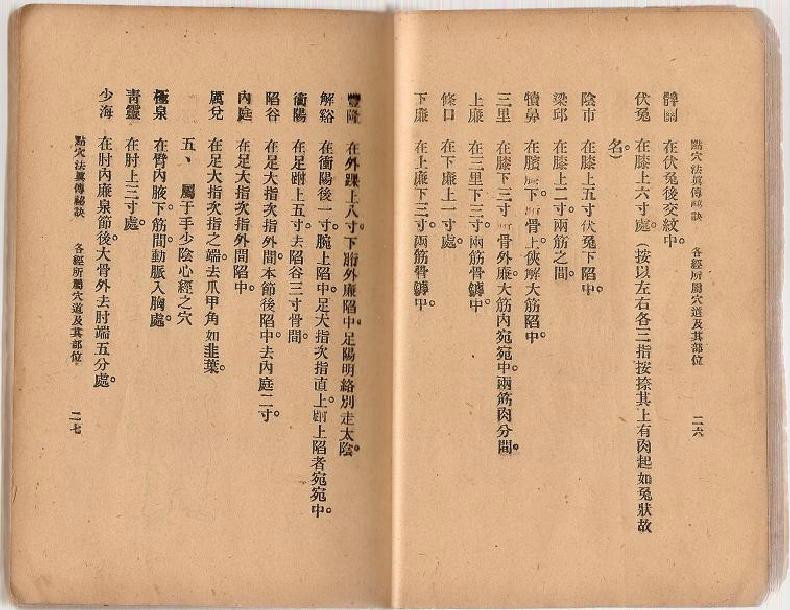 點穴法眞傳秘訣 各經所屬穴道及其部位 二六
髀關 在伏兔後交紋中。
伏兔 在膝上六寸處。（按以左右各三指按捺其上有肉起如兔狀故
名）
陰市 在膝上五寸伏兔下陷中。
梁邱 在膝上二寸兩筋之間。
犢鼻 在臏 下 骨上俠解大筋陷中。
三里 在膝下三寸 骨外廉大筋內宛宛中。兩筋肉分間。
上廉 在三里下三寸兩筋骨罅中。
條口 在下廉上一寸處。
下廉 在上廉下三寸兩筋骨罅中。
豐隆 在外踝上八寸。下胻外廉陷中。足陽明絡別走太陰。
解谿 在衝陽後一寸。腕上陷中。足大指次指直上 上陷者宛宛中。
衝陽 在足跗上五寸。去陷谷三寸骨間。
陷谷 在足大指次指外間本節後陷中。去內庭二寸。
內庭 在足大指次指外間陷中。
厲兌 在足大指次指之端去爪甲角如韭葉。
五、屬于手少陰心經之穴
極泉 在臂內腋下筋間動脈入胸處。
靑靈 在肘上三寸處。
少海 在肘內廉泉節後大骨外去肘端五分處。
點穴法眞傳秘訣 各經所屬穴道及其部位 二七